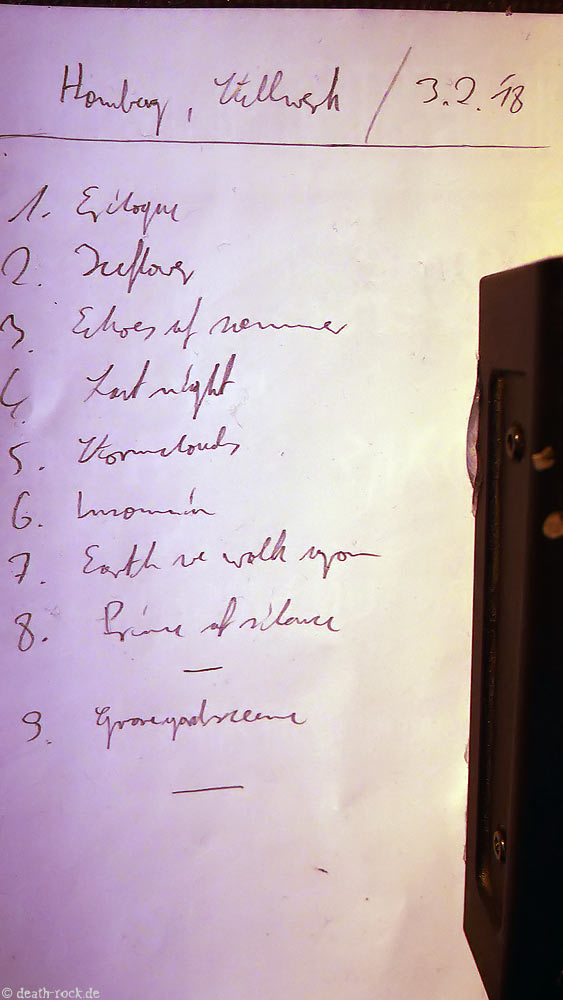 Hamburg, Stellwerk / 3.2.'18
1. Epilogue
2. Iceflower
3. Echoes of summer
4. Last night
5. Stormclouds
6. Insomnia
7. Earth we walk upon
8. Prince of silence
9. Graveyardscene
© death-rock.de